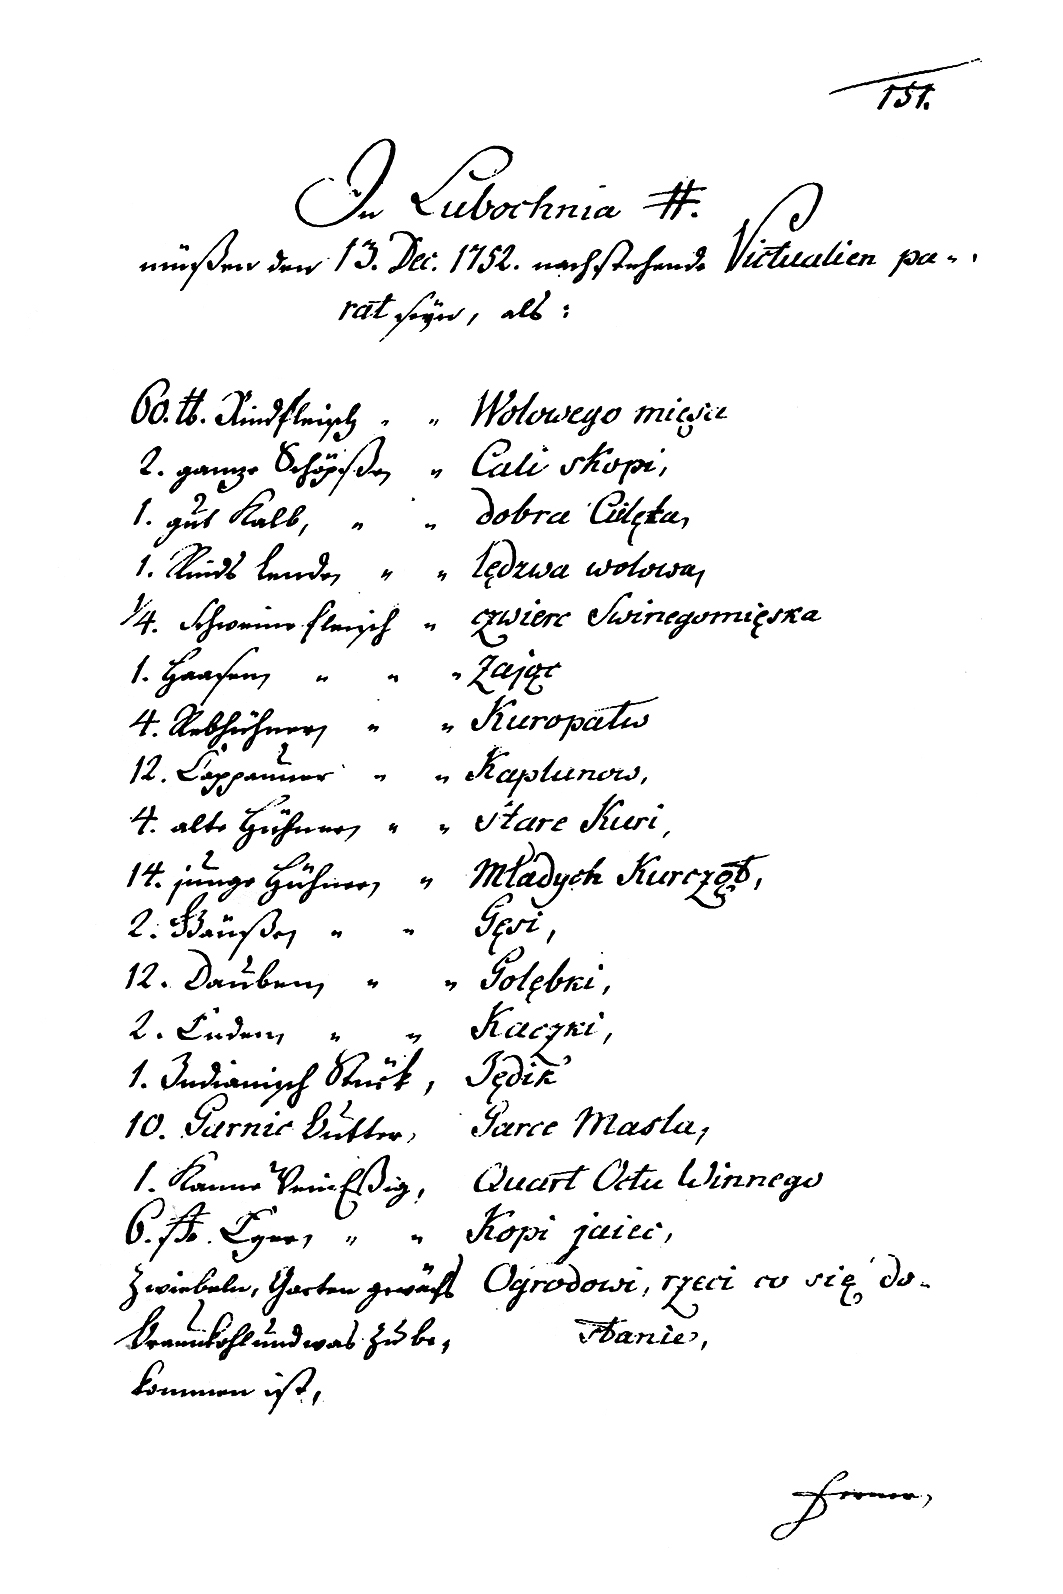 151.
In Lubochnia #.
müßen den 13. Dec. 1752. nachstehende Victualien pa-
rat seÿn, als:
60. ℔. Rindfleisch " " Wolowego mięsa
2. gantze Schöpße, " Cali skopi,
1. gut Kalb, " " dobra Cielęta,
1. Rinds Lende, " " lędzwa wolowa,
1/4. Schweine fleisch " czwierc Swinegomięska
1. Haasen, " " " Zając
4. Rebhühner, " " Kuropatw
12. Cappauner " " Kaplunow,
4. alte Hühner, " " stare Kuri,
14. junge Hühner, " Mładych Kurcząt,
2. Gäußer, " " Gęsi,
12. Dauben, " " Golębki,
2. Enden, " " Kaczki,
1. Indianisch Stück, Jędik
10. Garnic Butter, Garce Masla,
1. Kanne WeinEßig, Quart Octu Winnego
6. ßo. Eyer, " " Kopi jaiec,
Zwiebeln, Garten gewächß Ogrodowi, rzeci co się do-
Braunkohl und was zu be, stanie,
kommen ist,
Ferner,